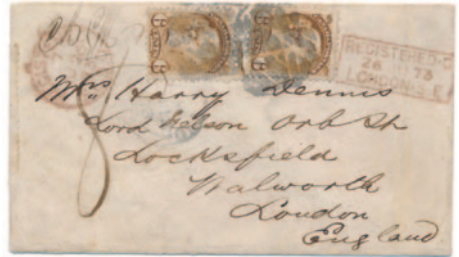 REGISTERED
28 73
LONDON S.E
8
Mrs Harry Dennis
Lord Nelson Orb St
Locksfield
Walworth
London
England